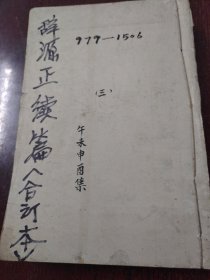 辞源正续篇(合订本)
979—1506
(三)
午未申酉集